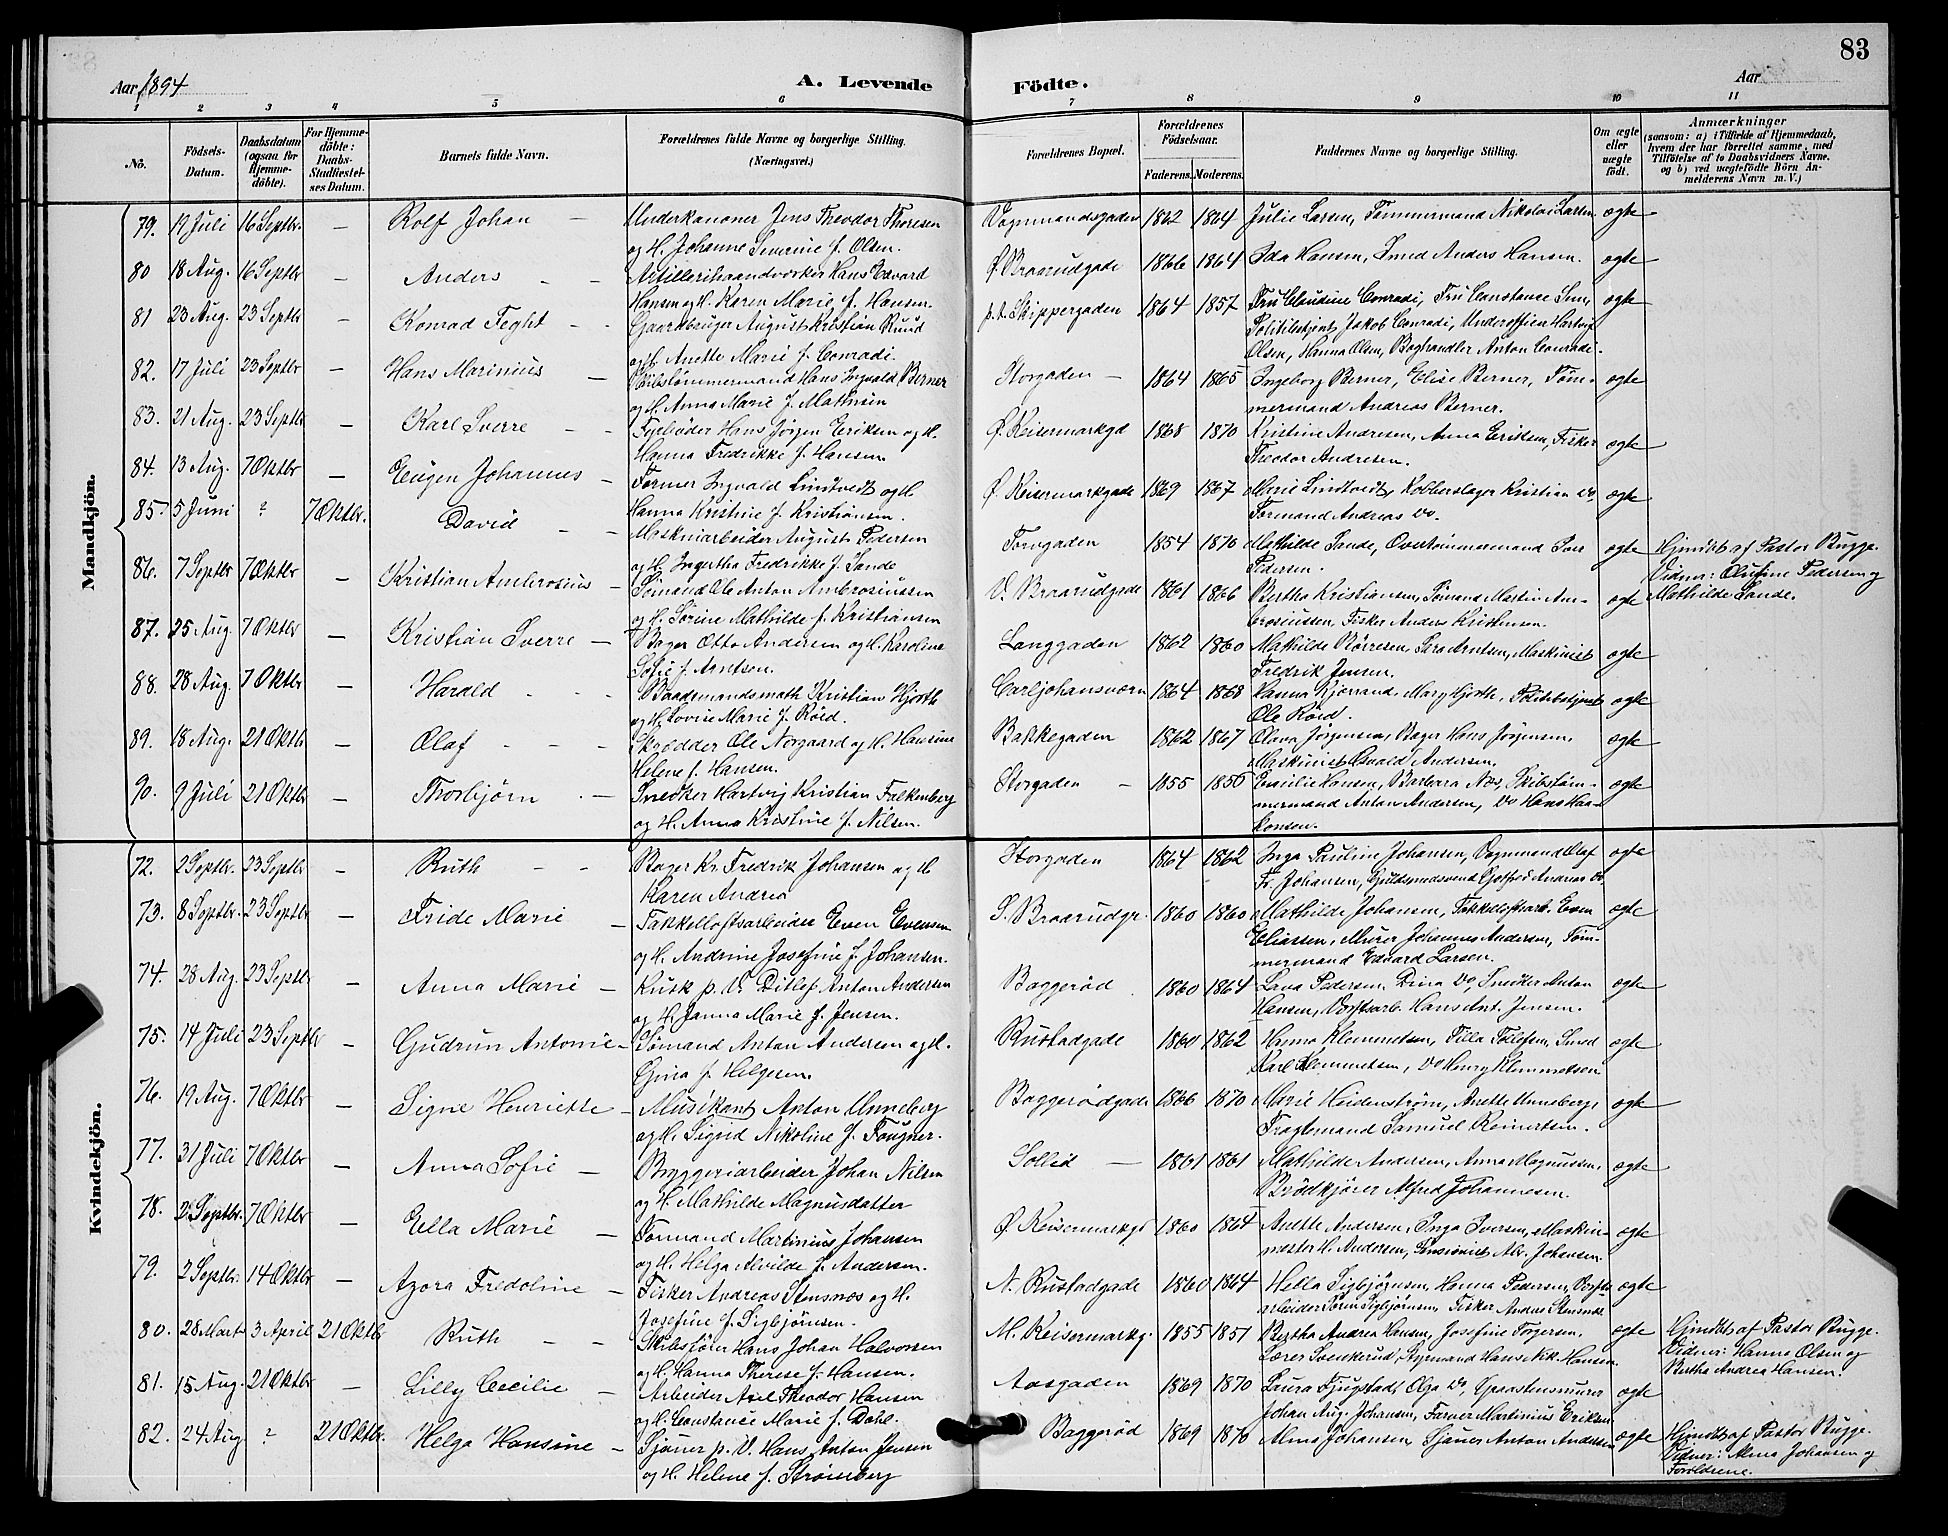 83
Aar 1894
A. Levende
Födte.
Aar
1 2 3 4 5 6 7 8 9 10 11
No.
Födsels-Datum.
Daabsdatum (ogsaa for Hjemme-döbte).
For Hjemme-döbte: Daabs-Stadfæstel-ses Datum.
Barnets fulde Navn.
Forældrenes fulde Navne og borgerlige Stilling. (Næringsvei.)
Forældrenes Bopæl.
Forældrenes Födselsaar.
Faderens. Moderens.
Faddernes Navne og borgerlige Stilling.
Om ægte eller uægte födt.
Anmærkninger
(saasom: a) i Tilfælde af Hjemmedaab, hvem der har forrettet samme, med Tilföielse af to Daabsvidners Navne, og b) ved uægtefödte Börn An-melderens Navn m. V.)
Mandkjön.
79. 19 Juli 16 Septbr. — Rolf Johan — Underkanoner Jens Theodor Thoresen Vognmandsgaden 1862 1864 Julie Larsen, Tømmermand Nikolai Larsen ægte
og H. Johanne Severine f. Olsen.
80 18 Aug. 16 Septbr — Anders - - Artillerihaandverker Hans Edvard Ø. Braarudgade 1866 1864 Ida Hansen, Smed Anders Hansen. ægte
Hansen og H. Karen Marie f. Hansen.
81 23 Aug. 23 Septbr — Konrad Teght - - Gaardbruger August Kristian Ruud p.t. Skippergaden 1864 1857 Fru Claudine Conradi, Fru Constance
Politibetjent Jakob Conradi, Underofficer Hartvig
og H. Anette Marie f. Conradi. Olsen, Hanna Olsen, Boghandler Anton Conradi. ægte
82. 17 Juli 23 Septbr — Hans Marinius — Skibstømmermand Hans Ingvald Berner Storgaden — 1864 1865 Ingeborg Berner, Elise Berner, Tøm- ægte
og H. Anna Marie f. Mathisen mermand Andreas Berner.
83. 21 Aug. 23 Septbr — Karl Sverre - - Fyrbøder Hans Jørgen Eriksen og H. Ø. Keisermarkgd 1868 1870 Kristine Andresen, Anna Eriksen, Fisker ægte
Hanna Fredrikke f. Hansen Theodor Andresen.
84. 13 Aug. 7 Oktbr — Eugen Johannes — Former Ingvald Lindtvedt og H. Ø. Keisermarkgade 1869 1867 Marie Lindtvedt, Kobberslager Kristian Do, ægte
Hanna Kristine f. Kristiansen. Sømand Andreas Do.
85. 5 Juni ? 7 Oktbr. David - - Maskinarbeider August Pedersen Torvgaden 1854 1870 Mathilde Sande, Overtømmermand Lars ægte Hjmdbt af Pastor Bugge.
og H. Ingertha Fredrikke f. Sande Pedersen. Vidner: Olufine Pedersen og
Mathilde Sande.
86. 7 Septbr 7 Oktbr — Kristian Ambrosius — Sømand Ole Anton Ambrosiussen V. Braarudgade 1861 1866 Bertha Kristiansen, Sømand Martin Am- ægte
og H. Sørine Mathilde f. Kristiansen brosiussen, Fisker Anders Kristensen.
87. 25 Aug. 7 Oktbr — Kristian Sverre — Bager Otto Andersen og H. Karoline Langgaden 1862 1860 Mathilde Børresen, Sara Arntsen, Maskinist ægte
Sofie f. Arntsen. Fredrik Jensen.
88. 28 Aug. 7 Oktbr — Harald - - - Baadsmandsmath Kristian Hjorth Carljohansværn 1864 1868 Hanna Kjørrand, Mary Hjorth, Politibetjent ægte
og H. Lovise Marie f. Röed. Ole Röed.
89. 18 Aug. 21 Oktbr — Olaf - - - Skrædder Ole Norgaard og H. Hansine Bakkegaden 1862 1867 Olava Jørgensen, Bager Hans Jørgensen, ægte
Helene f. Hansen. Maskinist Osvald Andersen.
90. 9 Juli 21 Oktbr — Thorbjørn - — Snedker Hartvig Kristian Falkenberg Storgaden — 1855 1856 Emilie Hansen, Barbara Næs, Skibstøm- ægte
og H. Anna Kristine f. Nilsen. mermand Anton Andersen, Do Hans Haa-
konsen.
Kvindekjön.
72. 2 Septbr. 23 Septbr — Ruth - - Bager Kr. Fredrik Johansen og H. Storgaden 1864 1862 Inga Pauline Johansen, Vognmand Olaf ægte
Karen Andrea Fr. Johansen, Guldsmedsvend Gotfred Andreas Do.
73. 8 Septbr. 23 Septbr — Fride Marie — Takkelloftsarbeider Even Evensen S. Braarudgr. 1860 1860 Mathilde Johansen, Takkelloftsarb. Even ægte
Eliassen, Murer Johannes Andersen, Tøm-
og H. Andrine Josefine f. Johansen. mermand Edvard Larsen.
74. 28 Aug. 23 Septbr — Anna Marie — Kusk p. V. Ditlef Anton Andersen Baggerød 1860 1864 Lava Pedersen, Dina Do, Snedker Anton ægte
og H. Janna Marie f. Jensen. Hansen, Verftsarb. Hans Ant. Jensen.
75. 14 Juli 23 Septbr — Gudrun Antonie — Sømand Anton Andersen og H. Rustadgade 1860 1862 Hanna Klemmetsen, Tilla Tollefsen, Smed ægte
Gina f. Helgesen. Karl Klemmetsen, Do Henry Klemmetsen
76. 19 Aug. 7 Oktbr — Signe Henriette — Musikant Anton Unneberg Baggerødgade 1866 1870 Marie Heidenstrøm, Anette Unneberg, ægte
og H. Sigrid Nikoline f. Fougner. Fragtemand Samuel Reinertsen.
77. 31 Juli 7 Oktbr — Anna Sofie — Bryggeriarbeider Johan Nilsen Sollid — 1861 1861 Mathilde Andersen, Anna Magnussen, ægte
og H. Mathilde Magnusdatter Brödkjører Alfred Johannesen.
78. 2 Septbr. 7 Oktbr — Ella Marie — Sømand Martinius Johansen Ø. Keisermarkgd 1860 1864 Anette Andersen, Inga Iversen, Maskin- ægte
og H. Helga Alvilde f. Andersen. mester H. Andersen, Pensionist Abr. Johansen.
79. 2 Septbr. 14 Oktbr — Azora Fredoline — Fisker Andreas Stensnæs og H. N. Rustadgade 1860 1864 Hella Sigbjørnsen, Hanna Pedersen, Verfts- ægte
Josefine f. Sigbjørnsen. arbeider Søren Sigbjørnsen, Fisker Anders Stensnæs
80. 28 Marts 3 April 21 Oktbr Ruth - - Skibsfører Hans Johan Halvorsen M. Keisermarkg. 1855 1851 Bertha Andrea Hansen, Josefine Torgersen, ægte Hjmdbt af Pastor Bugge.
og H. Hanna Therese f. Hansen. Lærer Svenkerud, Styrmand Hans Nik. Hansen. Vidner: Hanna Olsen og
Bertha Andrea Hansen.
81. 15 Aug. 21 Oktbr — Lilly Cecilie — Arbeider Axel Theodor Hansen Aasgaden 1869 1870 Laura Fjugstad, Olga Do, Graastensmurer ægte
og H. Constance Marie f. Dahl. Johan Aug. Johansen, Farver Martinius Eriksen
82. 24 Aug. ? 21 Oktbr. Helga Hansine — Sjauer p. V. Hans Anton Jensen Baggerød 1869 1870 Alma Johansen, Sjauer Anton Andersen ægte Hjmdbt af Pastor Bugge.
og H. Helene f. Strömsberg Vidner: Alma Johansen og
Forældrene.